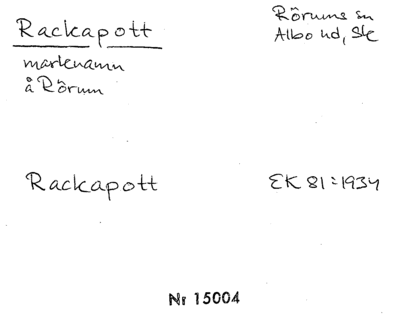 Rackapott
Rörums sn
Albo hd, Ske
marknamn
å Rörum
Rackapott
EK 81:1934
Nr 15004